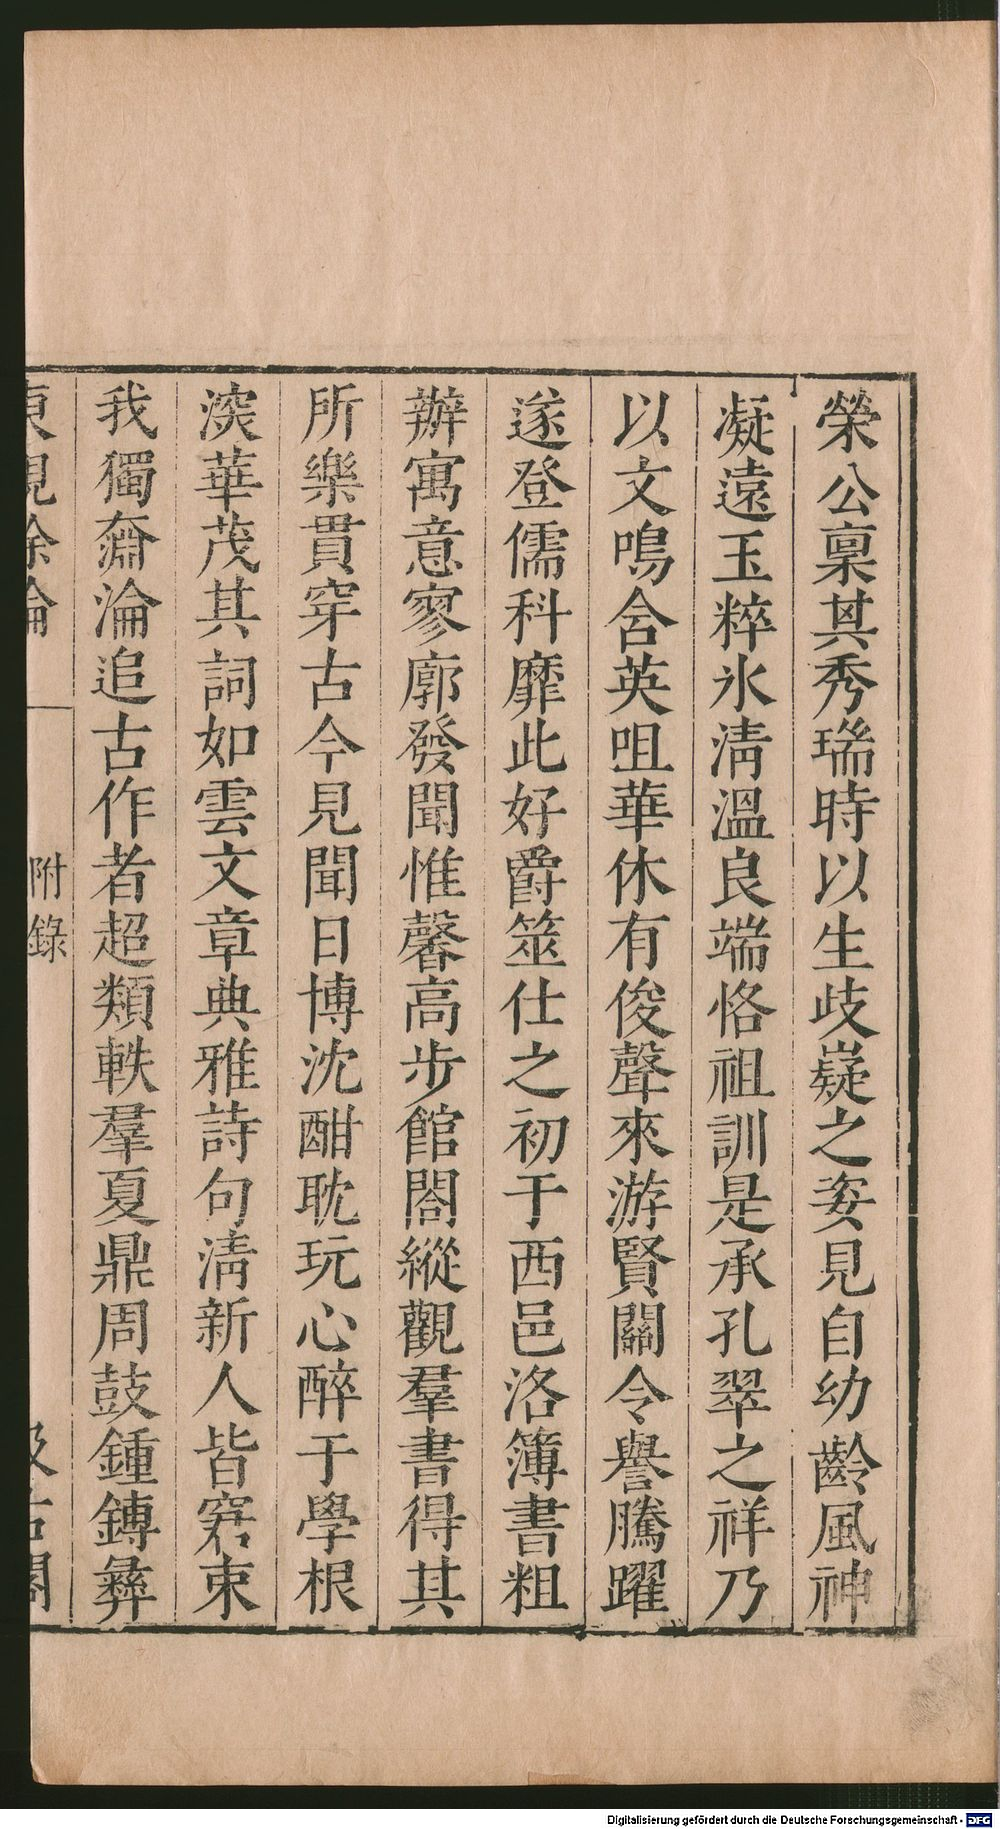 榮公稟其秀瑞時以生歧嶷之姿見自幼齡風神
凝遠玉粹氷清溫良端恪祖訓是承孔翠之祥乃
以文鳴含英咀華休有俊聲來游賢關令譽騰躍
遂登儒科靡此好爵筮仕之初于西邑洛簿書粗
辦寓意寥廓發聞惟馨高步館閣縱觀羣書得其
所樂貫穿古今見聞日博沈酣耽玩心醉于學根
深華茂其詞如雲文章典雅詩句清新人皆窘束
我獨奫淪追古作者超類軼羣夏鼎周鼓鍾鎛彝
東觀餘論
附錄
汲古閣
Digitalisierung gefördert durch die Deutsche Forschungsgemeinschaft - DFG